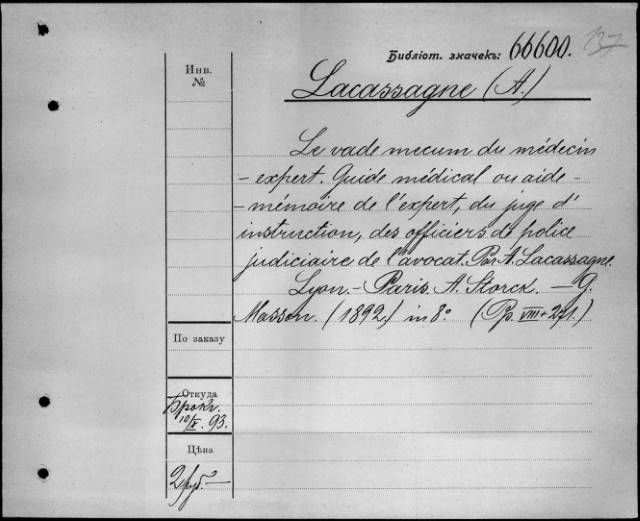 Библіот. значекъ: 66600. 137
Инв.
№
Lacassagne (A.)
Le vade mecum du médecin
- expert. Guide médical ou aide -
- mémoire de l'expert, du juge d'
instruction, des officiers de police
judiciaire de l'avocat. Par A. Lacassagne.
Lyon. - Paris. A. Storck. — G.
Masson. (1892.) in 8º (Pp. VIII + 271.)
По заказу
Откуда
Брокг.
10/X. 93.
Цѣна
2 руб. —